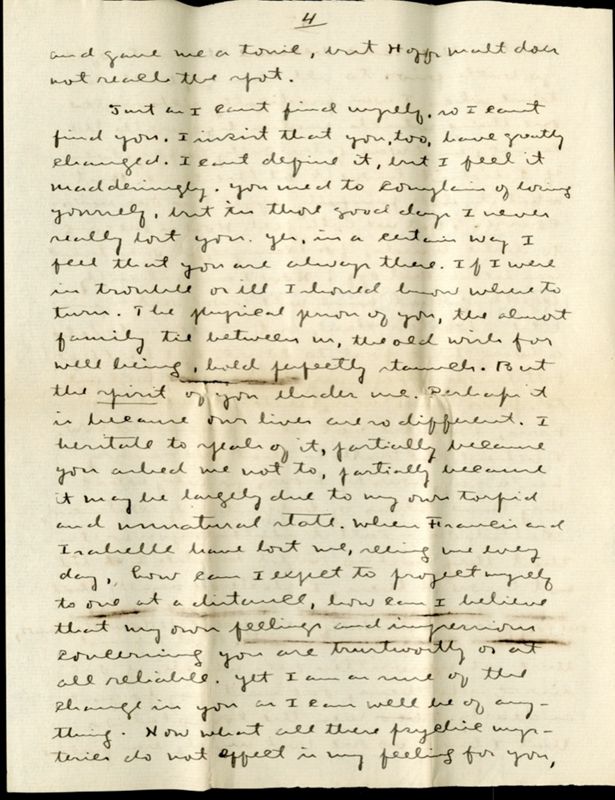 4
and gave me a tonic, but Hoff's malt does
not reach the spot.
Just as I can't find myself, so I can't
find you. I insist that you, too, have greatly
changed. I can't define it, but I feel it
maddeningly. You used to complain of losing
yourself, but in those good days I never
really lost you. Yes, in a certain way I
feel that you are always there. If I were
in trouble or ill I should know where to
turn. The physical person of you, the almost
family tie between us, the old wish for
well being, hold perfectly staunch. But
the spirit of you eludes me. Perhaps it
is because our lives are so different. I
hesitate to speak of it, partially because
you asked me not to, partially because
it may be largely due to my own torpid
and unnatural state. When Francis and
Isabelle have lost me, seeing me every
day, how can I expect to project myself
to one at a distance, how can I believe
that my own feelings and impressions
concerning you are trustworthy or at
all reliable. Yet I am as sure of the
change in you as I can well be of any-
thing. Now what all these psychic mys-
teries do not affect is my feeling for you,